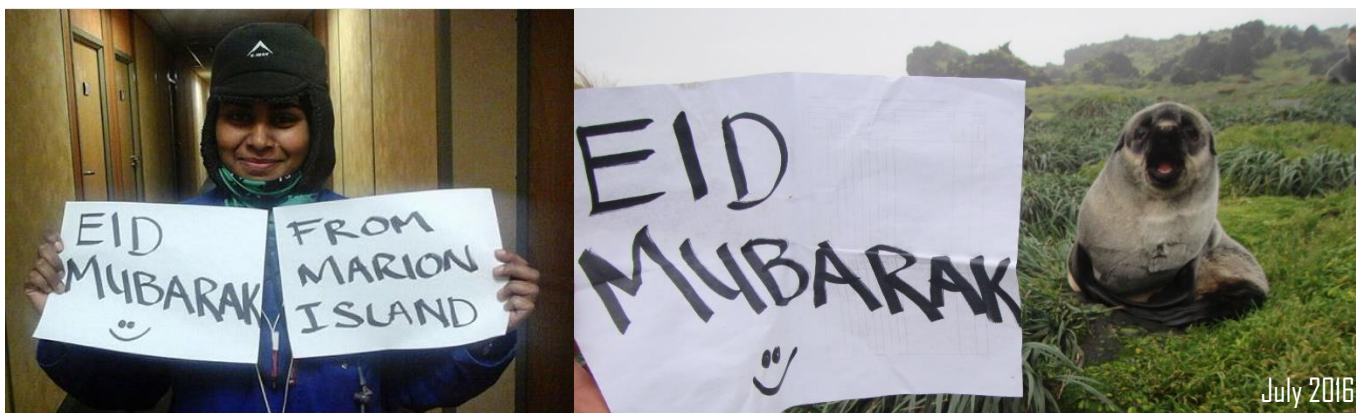 EID
MUBARAK
FROM
MARION
ISLAND
EID
MUBARAK
July 2016